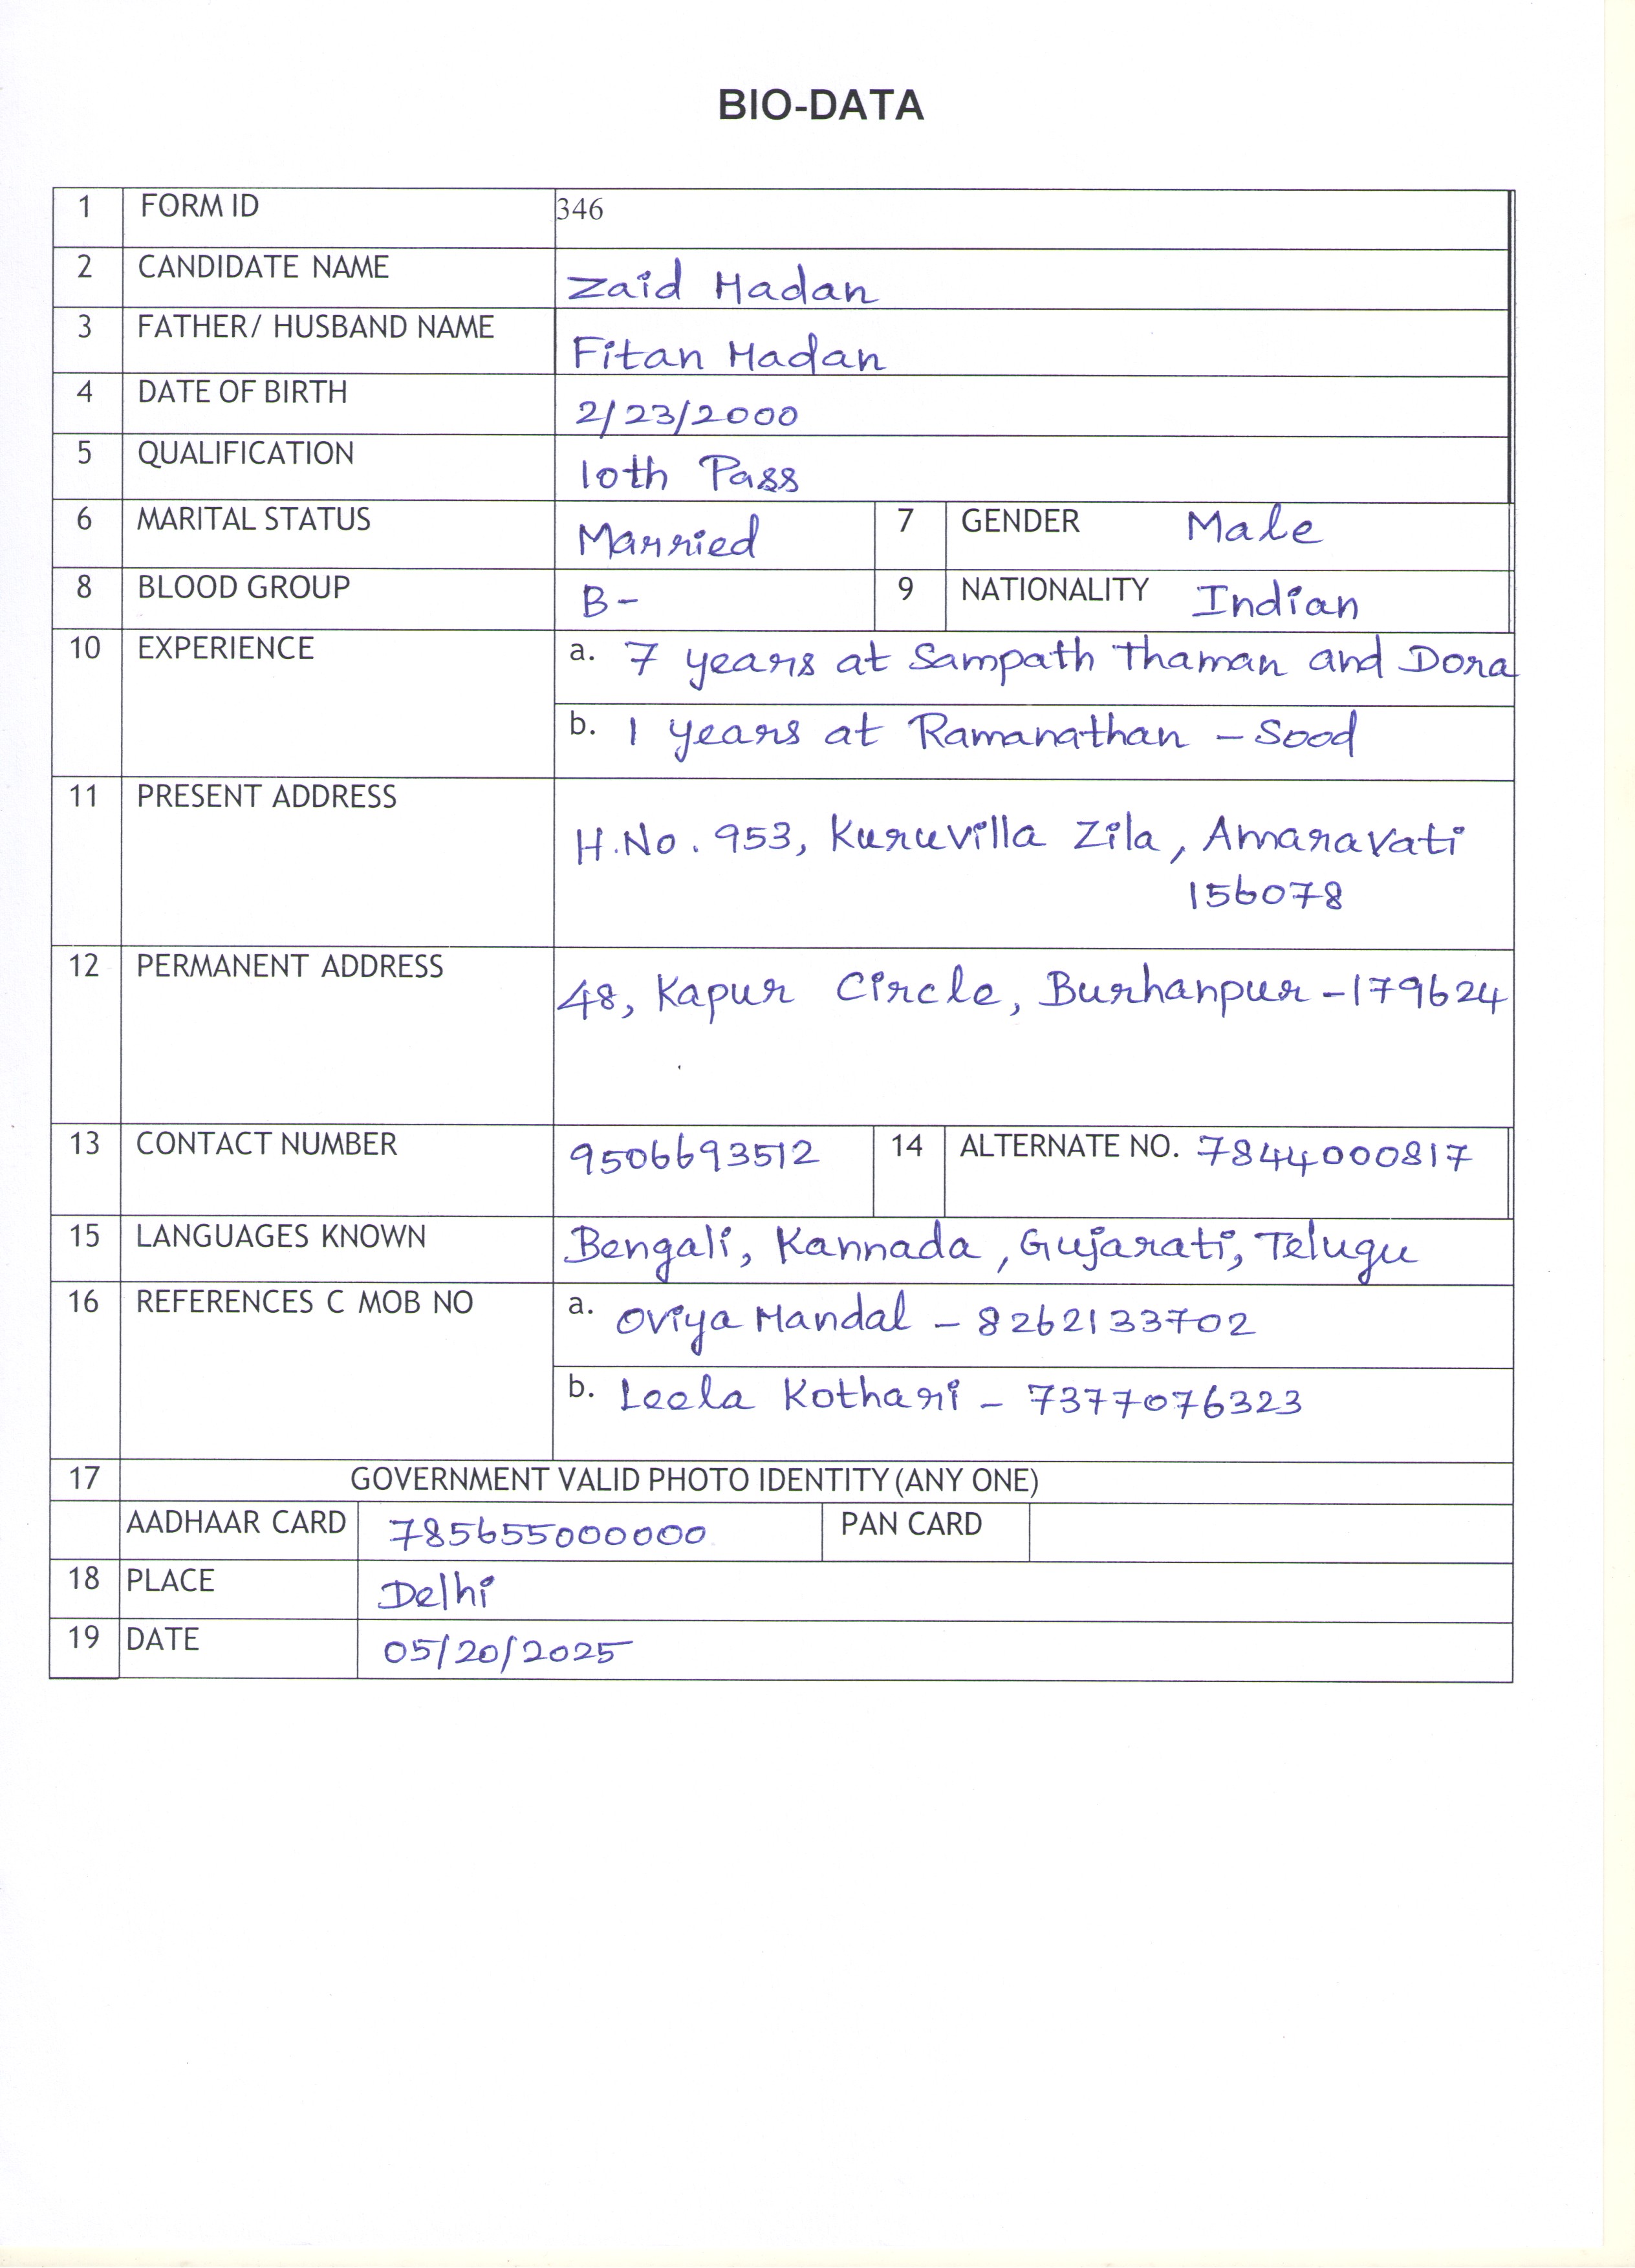 BIO-DATA
1 FORM ID 346
2 CANDIDATE NAME Zaid Madan
3 FATHER/ HUSBAND NAME Fitan Madan
4 DATE OF BIRTH 2/23/2000
5 QUALIFICATION 10th Pass
6 MARITAL STATUS Married 7 GENDER Male
8 BLOOD GROUP B- 9 NATIONALITY Indian
10 EXPERIENCE a. 7 years at Sampath Thaman and Dora
b. 1 years at Ramanathan - Sood
11 PRESENT ADDRESS
H.No. 953, Kuruvilla Zila, Amaravati
156078
12 PERMANENT ADDRESS 48, Kapur Circle, Burhanpur - 179624
13 CONTACT NUMBER 9506693512 14 ALTERNATE NO. 7844000817
15 LANGUAGES KNOWN Bengali, Kannada, Gujarati, Telugu
16 REFERENCES C MOB NO a. Oviya Mandal - 8262133702
b. Leela Kothari - 7377076323
17 GOVERNMENT VALID PHOTO IDENTITY (ANY ONE)
AADHAAR CARD 785655000000 PAN CARD
18 PLACE Delhi
19 DATE 05/20/2025